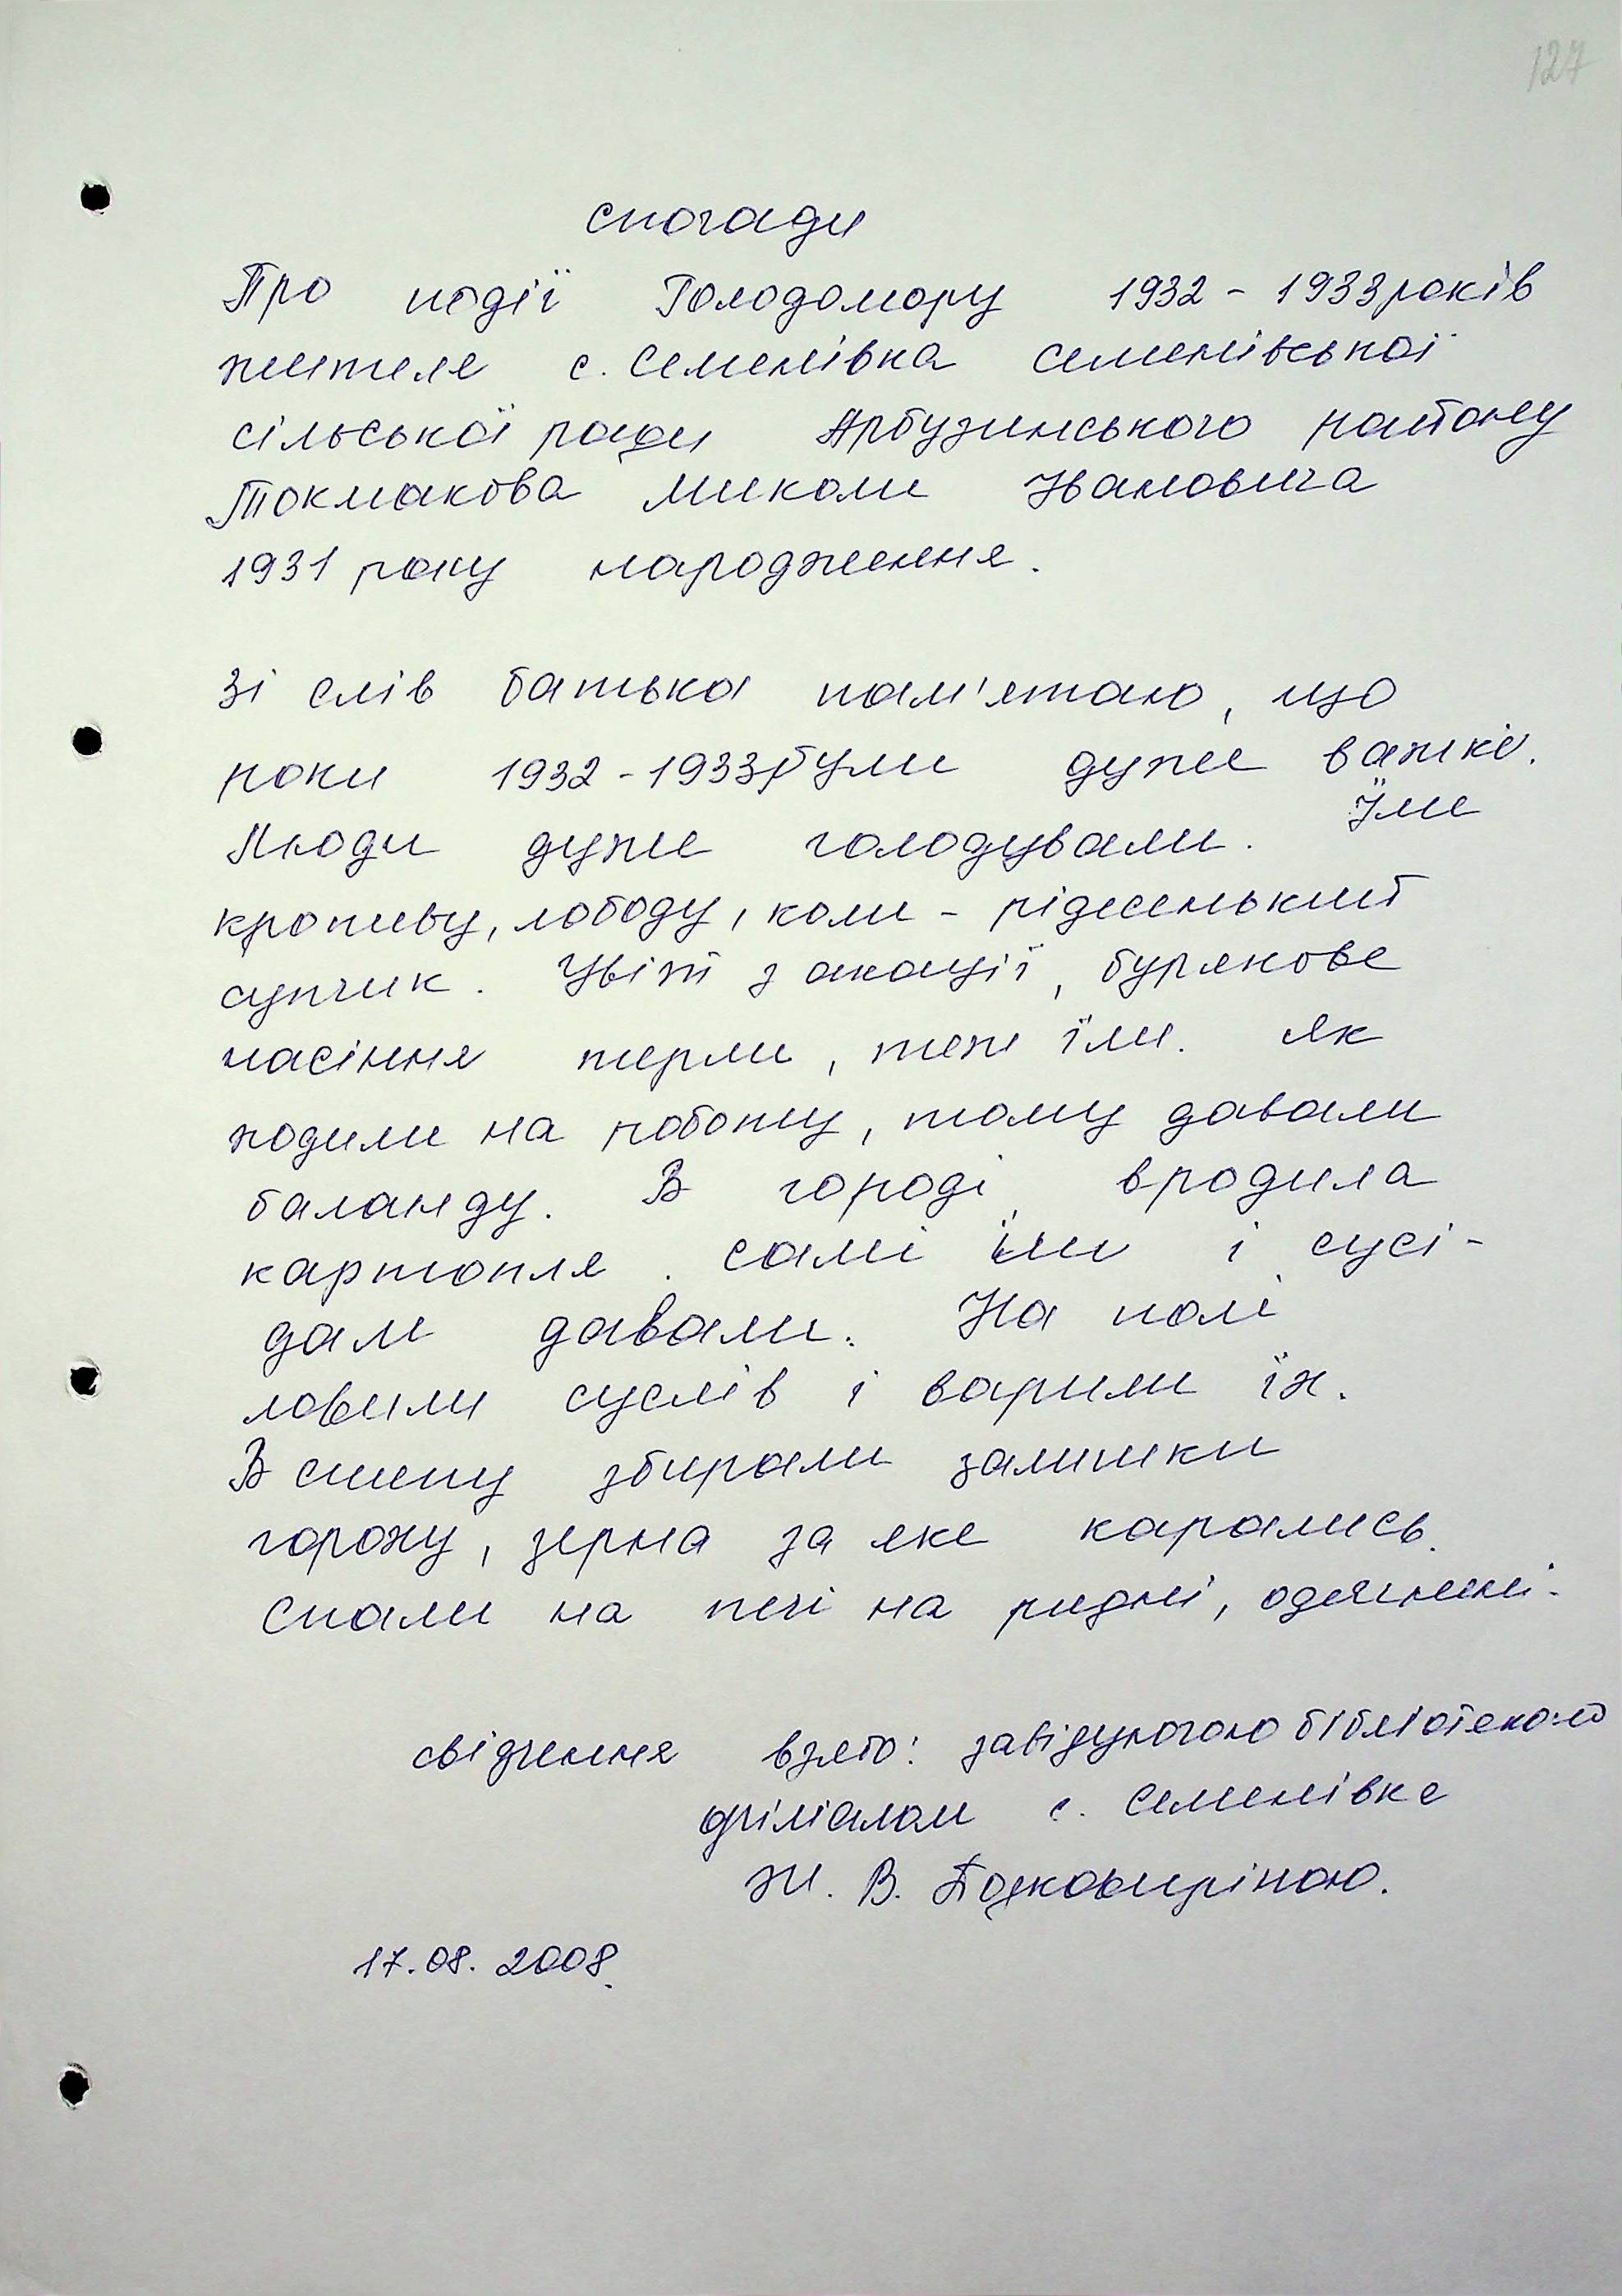 127
спогади
Про події Голодомору 1932 - 1933 років
жителя с. Семенівка Семенівської
сільської ради Арбузинського району
Токмакова Миколи Івановича
1931 року народження.
Зі слів батька пам'ятаю, що
роки 1932 - 1933 були дуже важкі.
Люди дуже голодували. Їли
кропиву, лободу, коли - рідесенький
супчик. Цвіт з акації, бурякове
насіння терли, теж їли. Як
ходили на роботу, тому давали
баланду. В городі вродила
картопля. Самі їли і сусі-
дам давали. На полі
ловили суслів і варили їх.
В степу збирали залишки
гороху, зерна за яке карались.
Спали на печі на рядні, одягнені.
свідчення взято: завідуючою бібліотекою
філіалом с. Семенівка
Ж. В.
17.08.2008.